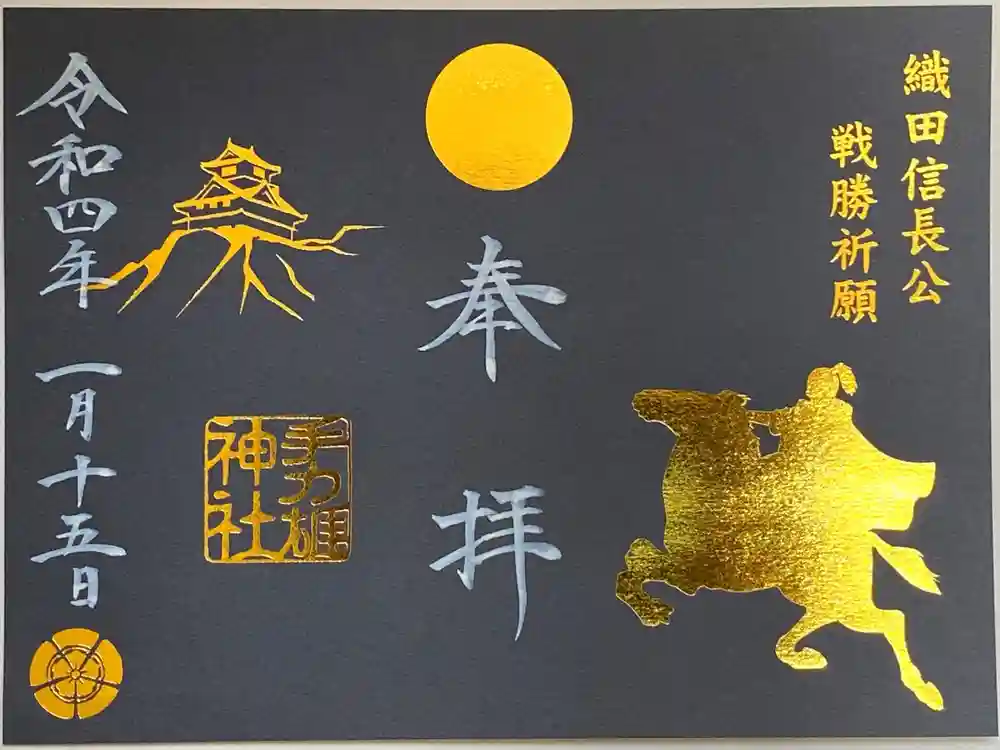 織田信長公
戦勝祈願
奉拝
手力雄
神社
令和四年一月十五日